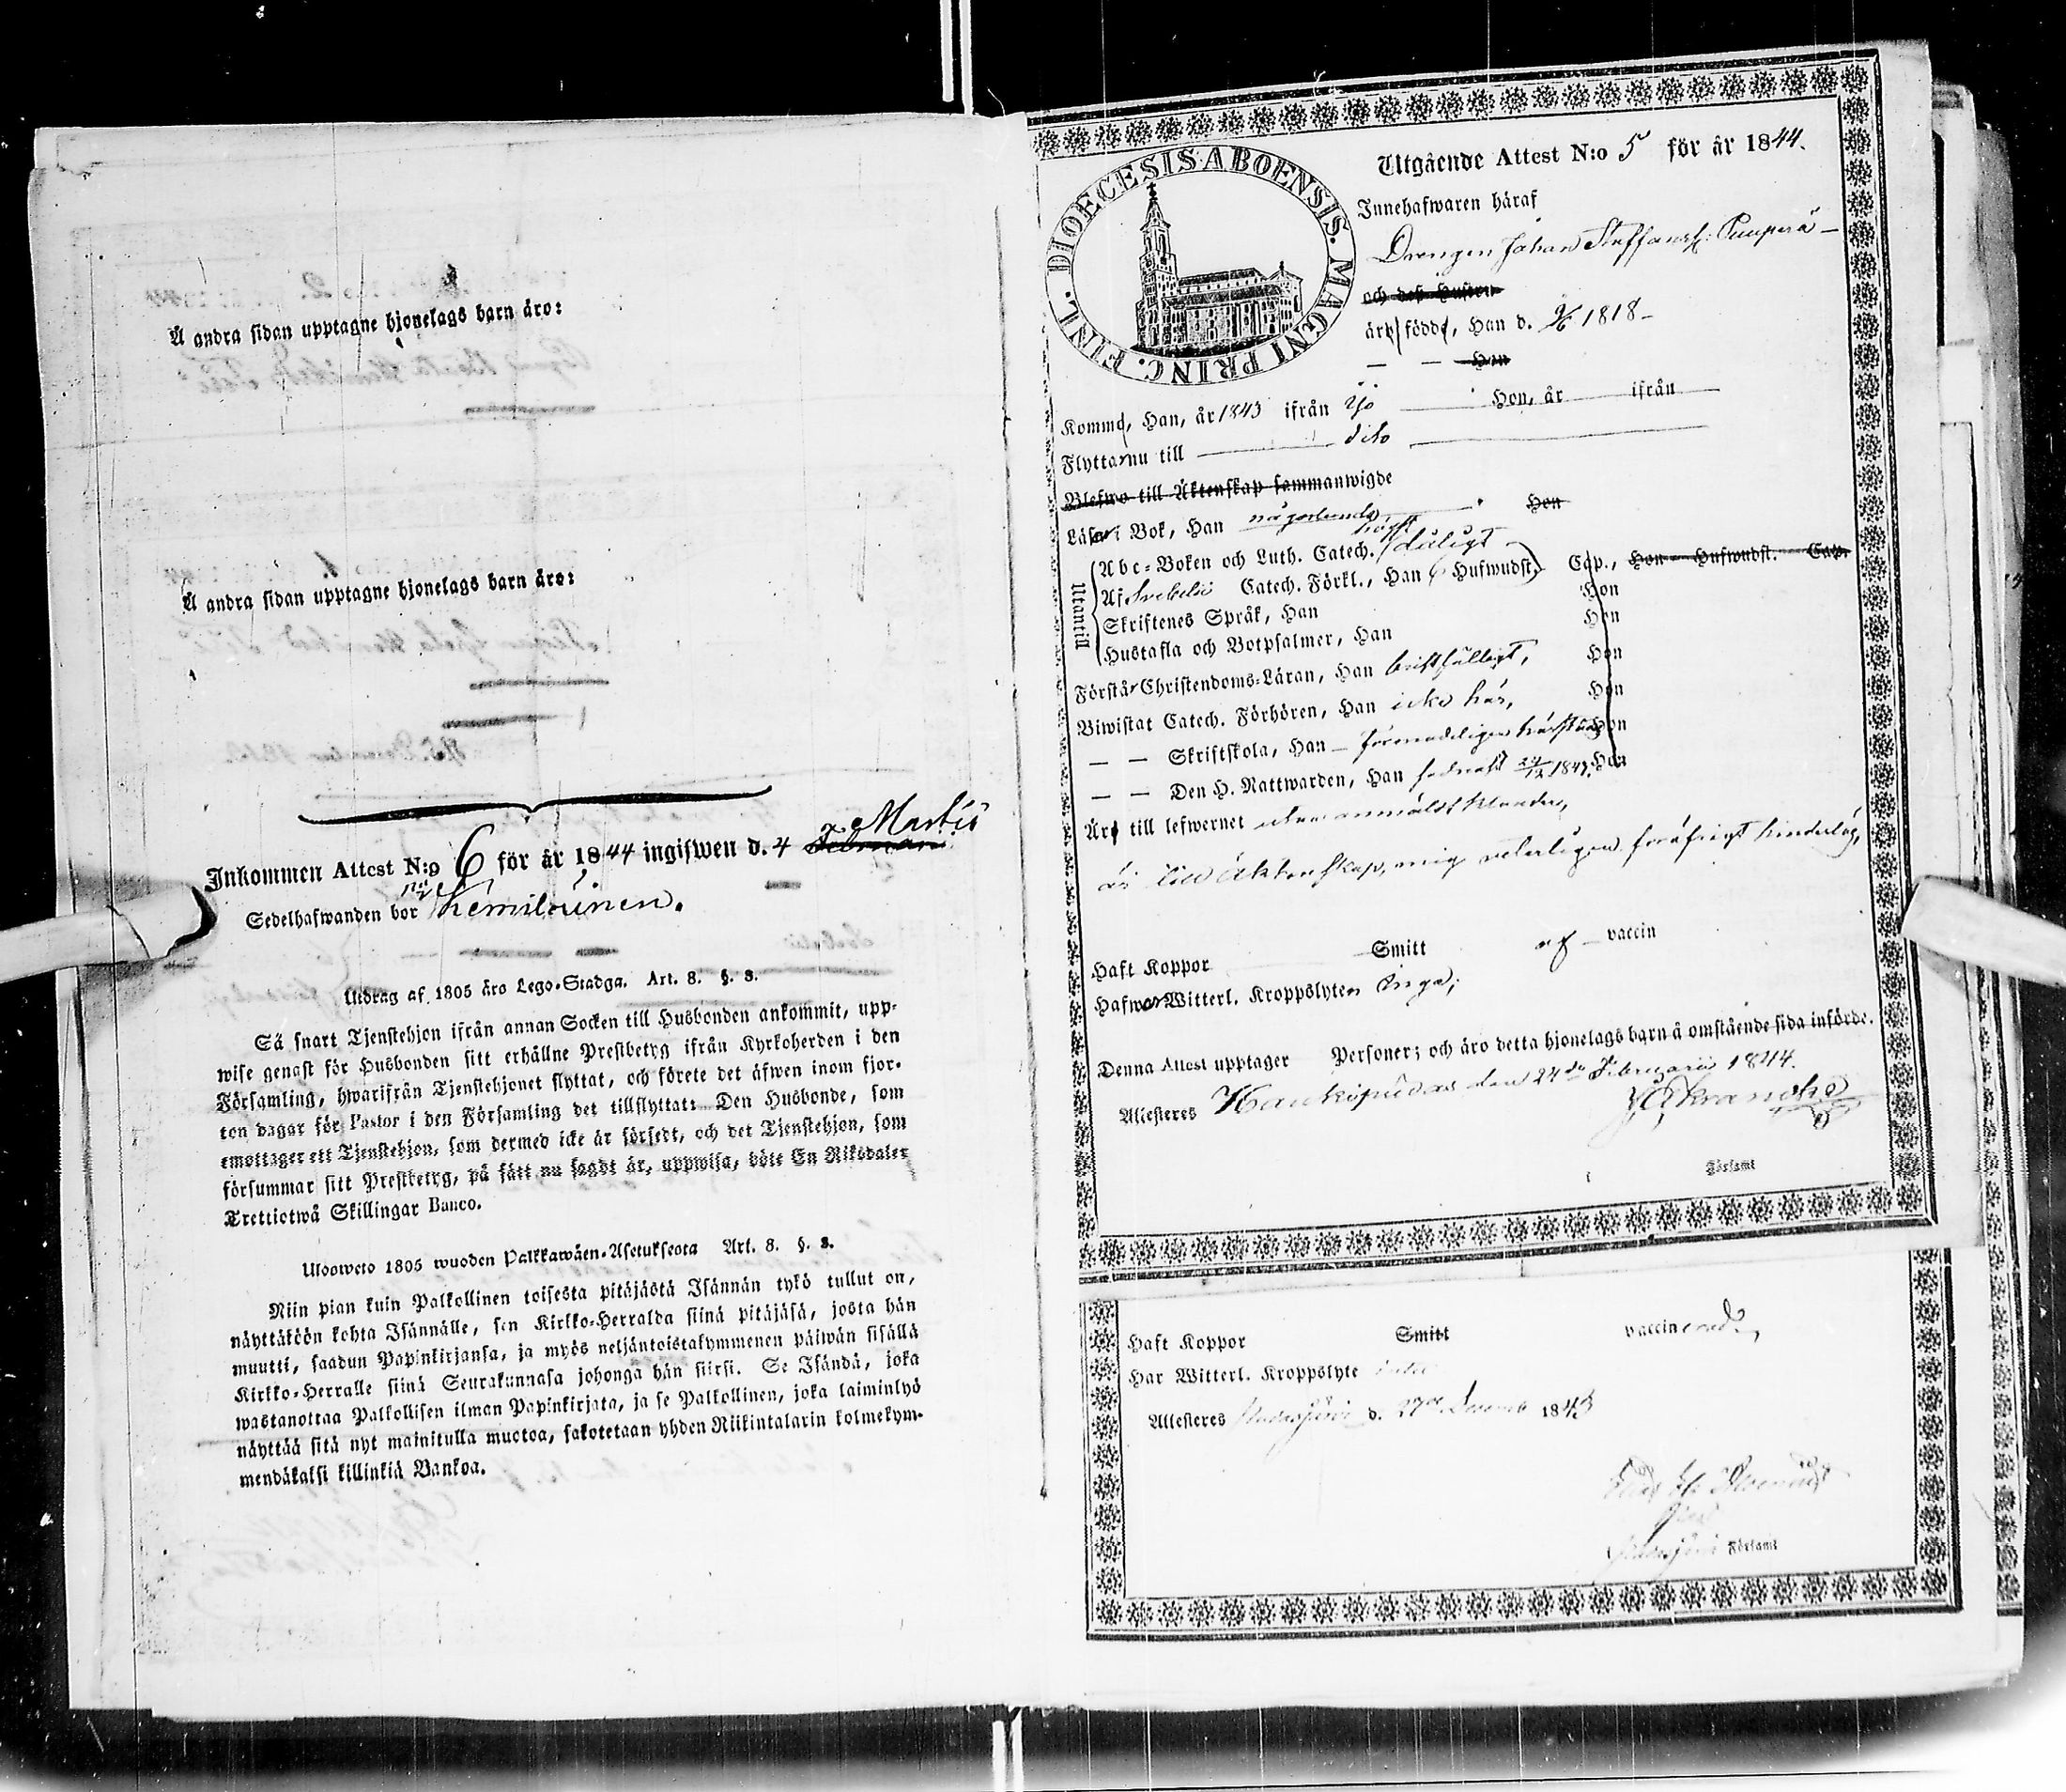 Å andra sidan upptagne hjonelags barn äro:
Å andra sidan upptagne hjonelags barn äro:
Inkommen Attest N:o 6 för år 1844 ingifwen d. 4 Martii Februari
Sedelhafwanden bor Kemiläinen.
Utdrag af 1805 års Lego-Stadga. Art. 8. §. 3.
Så snart Tjenstehjon ifrån annan Socken till Husbonden ankommit, upp-
wise genast för Husbonden sitt erhållne Prestbetyg ifrån Kyrkoherden i den
Församling, hwarifrån Tjenstehjonet flyttat, och förete det äfwen inom fjor-
ton dagar för Pastor i den Församling det tillflyttat: Den Husbonde, som
emottager ett Tjenstehjon, som dermed icke är försedt, och det Tjenstehjon, som
försummar sitt Prestbetyg, på sätt nu sagdt är, uppwisa, böte En Riksdaler
Trettiotwå Skillingar Banco.
Ulosweto 1805 wuoden Palkkawäen-Asetuksesta Art. 8. §. 3.
Niin pian kuin Palkollinen toisesta pitäjästä Isännän tykö tullut on,
näyttäköön kohta Isännälle, sen Kirkko-Herralda siinä pitäjäsä, josta hän
muutti, saadun Papinkirjansa, ja myös neljäntoistakymmenen päiwän sisällä
Kirkko-Herralle siinä Seurakunnasa johonga hän siirsi. Se Isändä, joka
wastanottaa Palkollisen ilman Papinkirjata, ja se Palkollinen, joka laiminlyö
näyttää sitä nyt mainitulla muotoa, sakotetaan yhden Riikintalarin kolmekym-
mendäkaksi killinkiä Bankoa.
DIOECESIS ABOENSIS. MAGNI PRINC. FINL.
Utgående Attest N:o 5 för år 1844.
Innehafwaren häraf
Drengen Johan Steffanss: Puuperä
och dess hustru
är födde, Han d. 9/6 1818
Hon
Komme, Han, år 1843 ifrån Ijo Hon, år ifrån
Flyttar nu till dito
Blefwo till Äktenskap sammanwigde
Läser i Bok, Han någorlunda Hon
Utantill
Abc-Boken och Luth. Catech. högst dåligt
Af Svebelii Catech. Förkl., Han 6 Hufwudst. Cap., Hon Hufwudst. Cap.
Skriftenes Språk, Han Hon
Hustafla och Botpsalmer, Han Hon
Förstår Christendoms-Läran, Han bristfälligt, Hon
Biwistat Catech. Förhören, Han icke här, Hon
— — Skriftskola, Han förmodeligen härstädes Hon
— — Den H. Nattwarden, Han sednast 24/12 1843. Hon
Är till lefwernet utan anmäldt klander,
är till äktenskap, mig veterligen, för öfrigt hinderslös,
Haft Koppor Smitt af vaccin
Hafwer Witterl. Kroppslyten inga;
Denna Attest upptager Personer; och äro detta hjonelags barn å omstående sida införde.
Attesteres Haukipudas den 24de Februarii 1844.
Församl
Haft Koppor Smitt vaccinerad,
Har Witterl. Kroppslyte
Attesteres d. 27de 1843
Församl